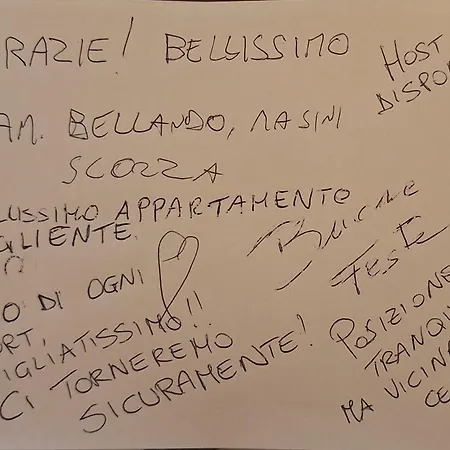 RAZIE! BELLISSIMO
HOST
DISPO
AM. BELLANDO, MASINI
SCOZZA
LLISSIMO APPARTAMENTO
GLIENTE
BUONE
FESTE
O DI OGNI
ORT,
IGLIATISSIMO!!
CI TORNEREMO
SICURAMENTE!
POSIZIONE
TRANQU
MA VICINA
CE